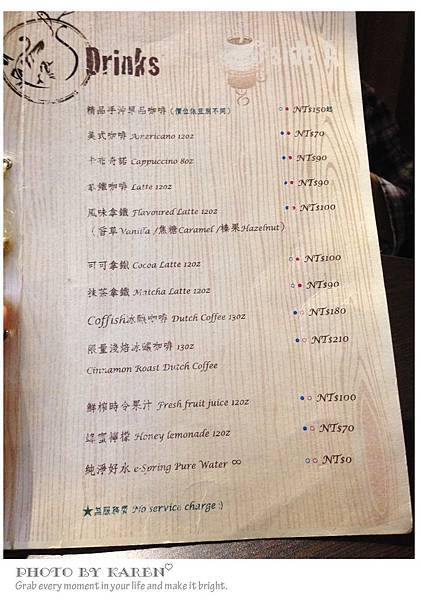 Drinks
精品手沖單品咖啡（價位依豆別不同） NT$150起
美式咖啡 Americano 12oz NT$70
卡布奇諾 Cappuccino 8oz NT$90
拿鐵咖啡 Latte 12oz NT$90
風味拿鐵 Flavoured Latte 12oz NT$100
（香草Vanilla /焦糖Caramel /榛果Hazelnut）
可可拿鐵 Cocoa Latte 12oz NT$100
抹茶拿鐵 Matcha Latte 12oz NT$90
Coffish冰釀咖啡 Dutch Coffee 13oz NT$180
限量淺焙冰釀咖啡 13oz NT$210
Cinnamon Roast Dutch Coffee
鮮榨時令果汁 Fresh fruit juice 12oz NT$100
蜂蜜檸檬 Honey lemonade 12oz NT$70
純淨好水 e-Spring Pure Water ∞ NT$0
★無服務費 No service charge :)
PHOTO BY KAREN♡
Grab every moment in your life and make it bright.